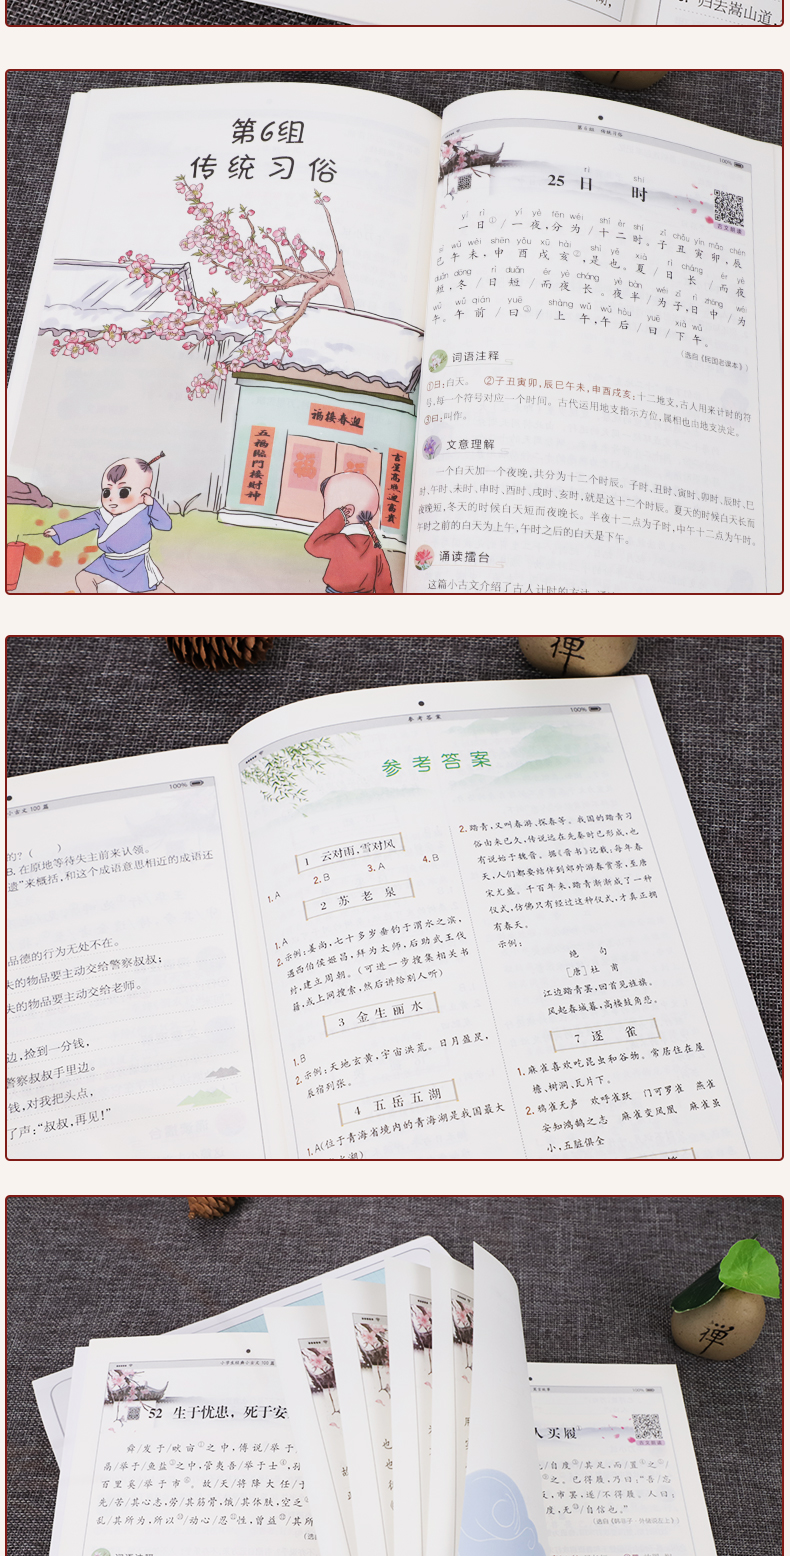 归去嵩山道,
第6组
传统习俗
五福临门接财神
福接春迎
吉星高照迎富贵
第6组 传统习俗
100%
25 日 时
rì shí
古文朗读
yí rì yí yè fēn wéi shí èr shí zǐ chǒu yín mǎo chén
一日①/一夜,分为/十二时。子丑寅卯,辰
sì wǔ wèi shēn yǒu xū hài shì yě xià rì cháng ér yè
巳午未,申酉戌亥②,是也。夏/日长/而夜
duǎn dōng rì duǎn ér yè cháng yè bàn wéi zǐ rì zhōng wéi
短,冬/日短/而夜长。夜半/为子,日中/为
wǔ wǔ qián yuē shàng wǔ wǔ hòu yuē xià wǔ
午。午前/曰③/上午,午后/曰/下午。
(选自《民国老课本》)
词语注释
①日:白天。 ②子丑寅卯,辰巳午未,申酉戌亥:十二地支,古人用来计时的符
号,每一个符号对应一个时间。古代运用地支指示方位,属相也由地支决定。
③曰:叫作。
文意理解
一个白天加一个夜晚,共分为十二个时辰。子时、丑时、寅时、卯时、辰时、巳
时、午时、未时、申时、酉时、戌时、亥时,就是这十二个时辰。夏天的时候白天长而
夜晚短,冬天的时候白天短而夜晚长。半夜十二点为子时,中午十二点为午时。
午时之前的白天为上午,午时之后的白天是下午。
诵读擂台
这篇小古文介绍了古人计时的方法
禅
小古文100篇
100%
的?( )
B.在原地等待失主前来认领。
遗”来概括,和这个成语意思相近的成语还
品德的行为无处不在。
失的物品要主动交给警察叔叔;
失的物品要主动交给老师。
边,捡到一分钱,
警察叔叔手里边。
钱,对我把头点,
了声:“叔叔,再见!”
参考答案
100%
参考答案
1 云对雨,雪对风
1.A 2.B 3.A 4.B
2 苏老泉
1.A
2.示例:姜尚,七十多岁垂钓于渭水之滨,
遇西伯侯姬昌,拜为太师,后助武王伐
纣,建立周朝。(可进一步搜集相关书
籍,或上网搜索,然后讲给别人听)
3 金生丽水
1.B
2.示例:天地玄黄,宇宙洪荒。日月盈昃,
辰宿列张。
4 五岳五湖
1.A(位于青海省境内的青海湖是我国最大
2.踏青,又叫春游、探春等。我国的踏青习
俗由来已久,传说远在先秦时已形成,也
有说始于魏晋。据《晋书》记载:每年春
天,人们都要结伴到郊外游春赏景,至唐
宋尤盛。千百年来,踏青渐渐成了一种
仪式,仿佛只有经过这种仪式,才真正拥
有春天。
示例:
绝 句
[唐]杜 甫
江边踏青罢,回首见旌旗。
风起春城暮,高楼鼓角悲。
7 逐 雀
1.麻雀喜欢吃昆虫和谷物。常居住在屋
檐、树洞、瓦片下。
2.鸦雀无声 欢呼雀跃 门可罗雀 燕雀
安知鸿鹄之志 麻雀变凤凰 麻雀虽
小,五脏俱全
禅
小学生经典小古文100篇
52 生于忧患,死于安
舜/发于/畎亩①之中,傅说/举于
高/举于/鱼盐②之中,管夷吾/举于士④,孙
百里奚/举于市⑥。故/天/将降大任/于
先/苦/其心志,劳/其筋骨,饿/其体肤,空乏
乱/其所为,所以/动心/忍性,曾益/其所
词语注释
人买履
100%
古文朗读
/自度/其足,而/置之
之。已得履,乃曰:“吾/忘
天,市罢,遂/不得履。人曰:
度,无/自信也。”
(选自《韩非子·外储说左上》)